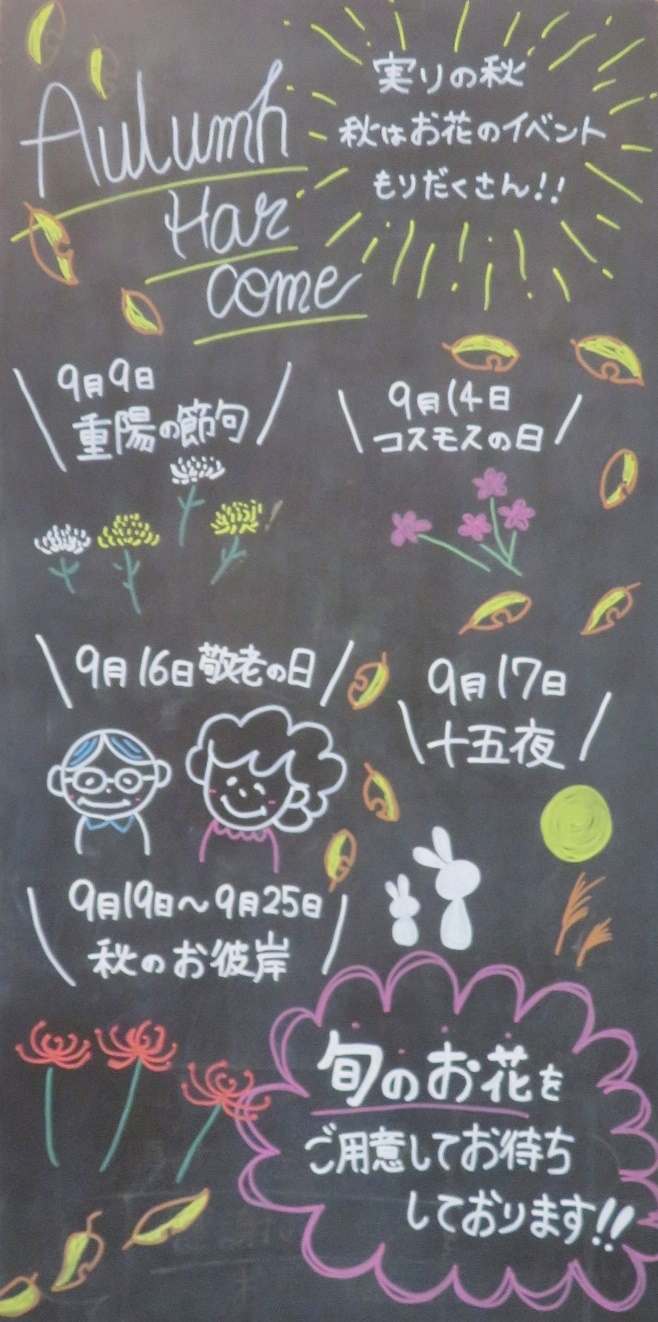 Autumn
Har
come
実りの秋
秋はお花のイベント
もりだくさん!!
9月9日
重陽の節句
9月14日
コスモスの日
9月16日敬老の日
9月17日
十五夜
9月19日～9月25日
秋のお彼岸
旬のお花を
ご用意してお待ち
しております!!